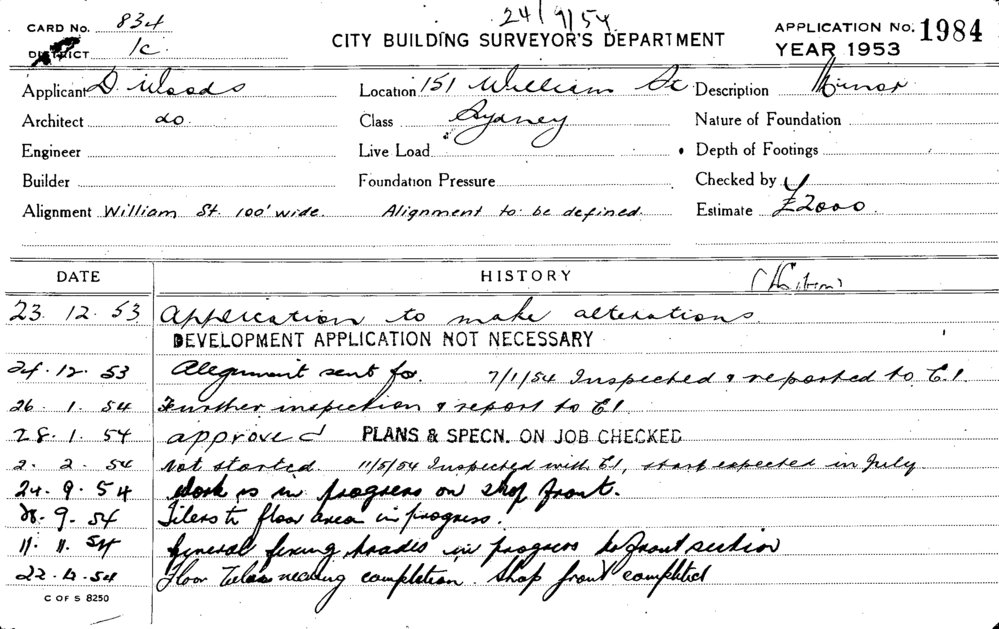 24/9/54
CARD No. 834
CITY BUILDING SURVEYOR'S DEPARTMENT
APPLICATION No. 1984
DISTRICT 1c.
YEAR 1953
Applicant D. Woods Location 151 William St Description Minor
Architect do. Class Sydney Nature of Foundation
Engineer Live Load Depth of Footings
Builder Foundation Pressure Checked by
Alignment William St. 100' wide. Alignment to be defined. Estimate £2000
DATE HISTORY
23. 12. 53 Application to make alterations
DEVELOPMENT APPLICATION NOT NECESSARY
24.12.53 Alignment sent for. 7/1/54 Inspected & reported to C.I.
26. 1. 54 Further inspection & report to C.I.
28.1.54 approved PLANS & SPECN. ON JOB CHECKED
2. 2. 54 Not started 11/5/54 Inspected with C.I, start expected in July
24.9.54 Work is in progress on shop front.
9.54 Tilers to floor area in progress.
11.11.54 General fixing trades in progress to front section
22.54 Floor nearing completion. Shop front completed
C OF S 8250